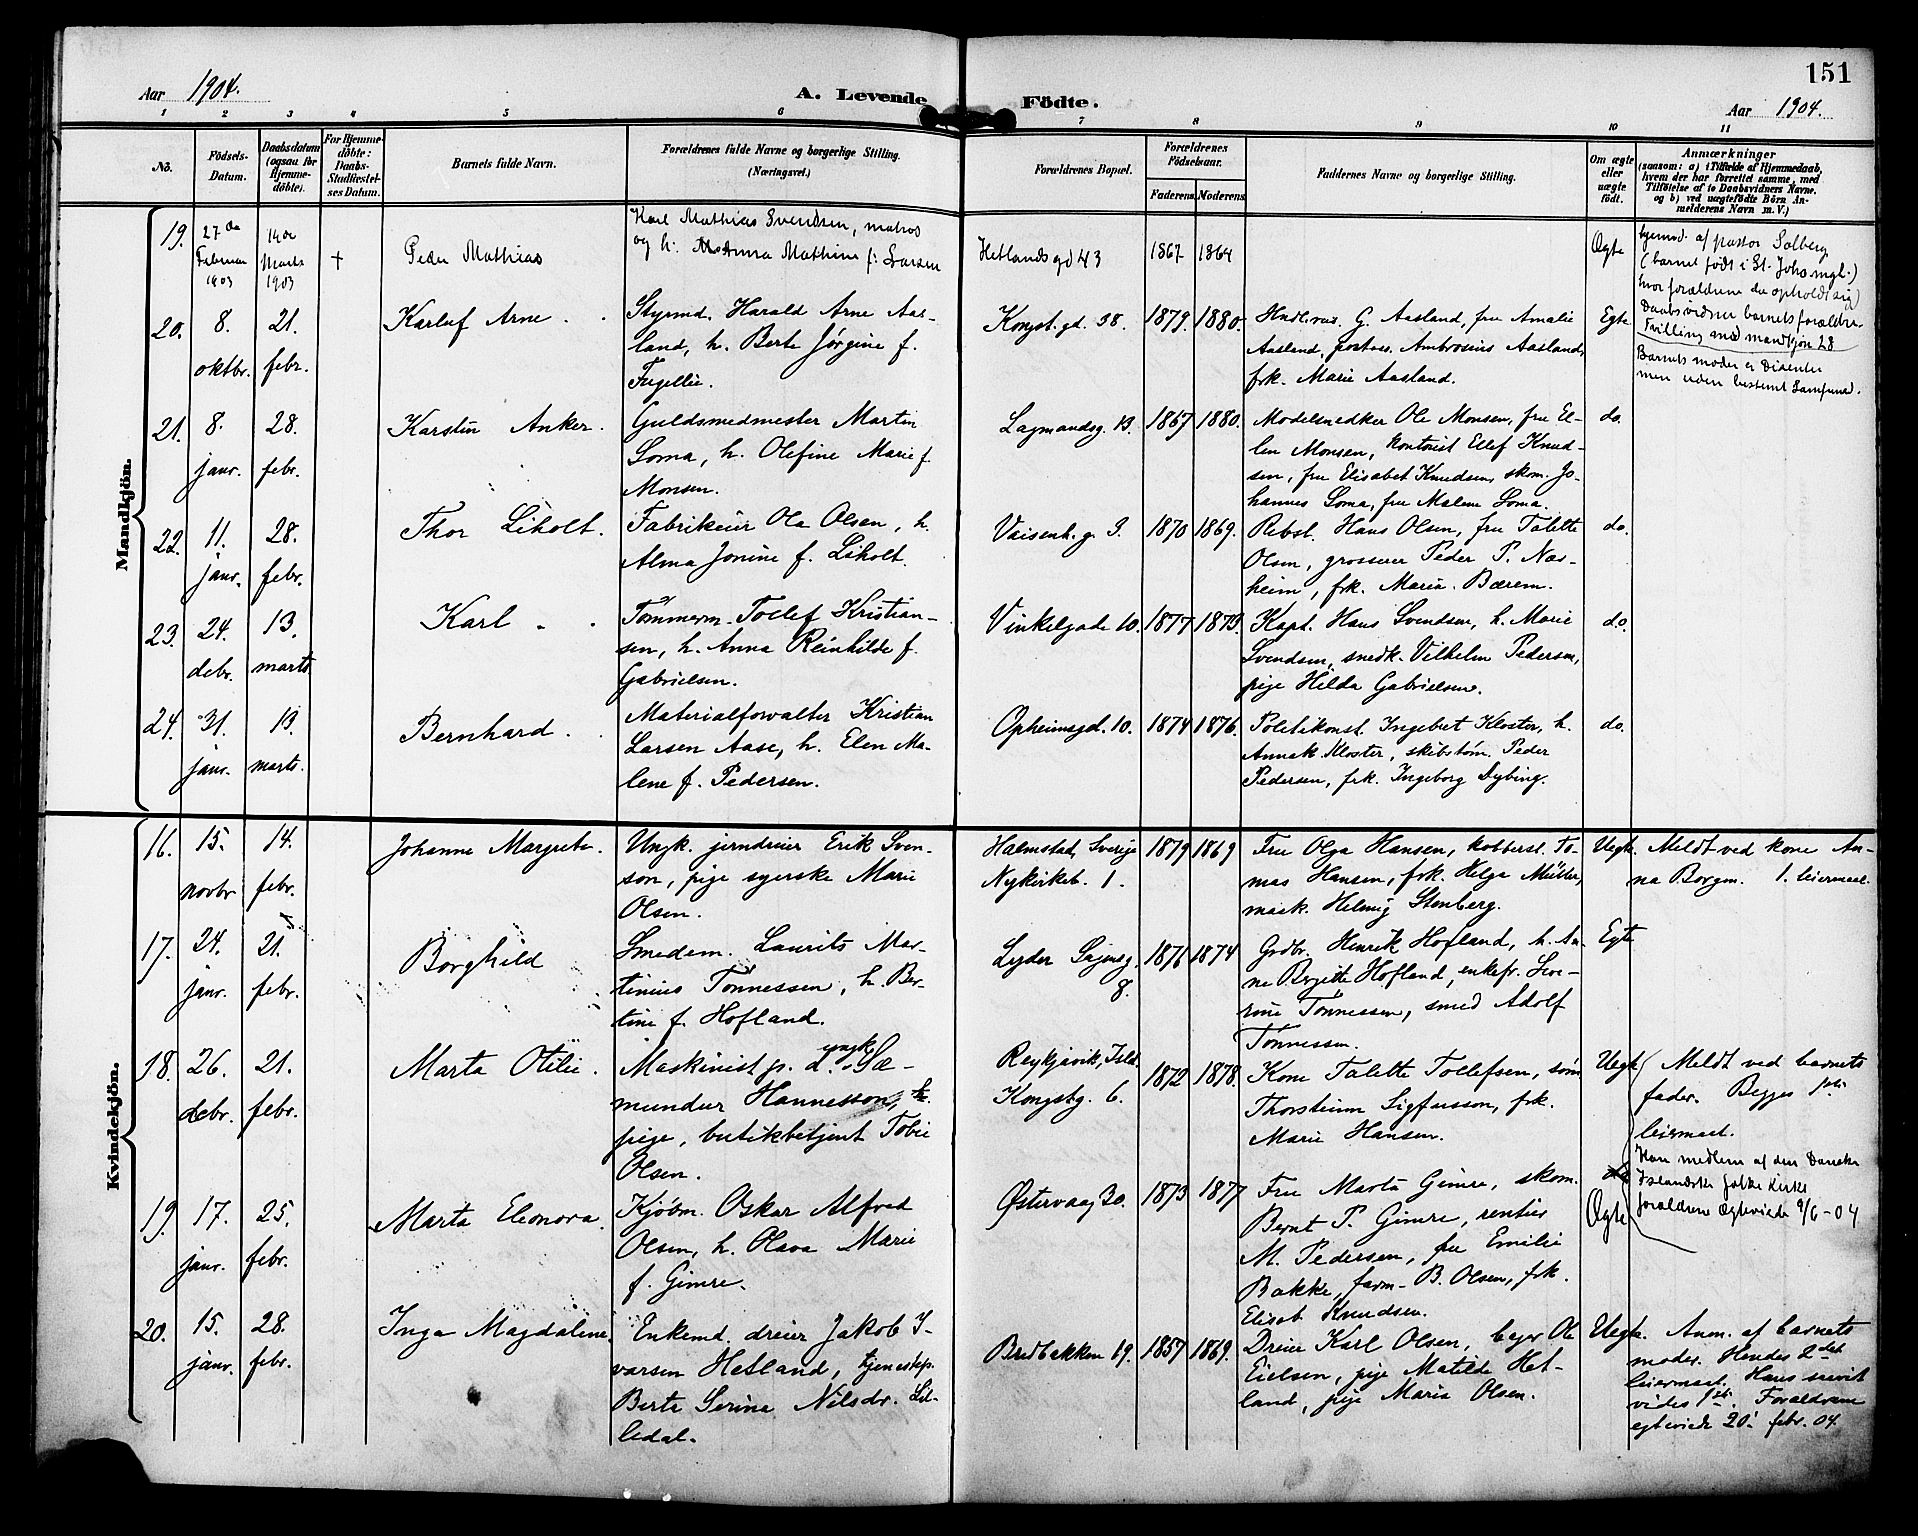 151
Aar 1904.
A. Levende Födte.
Aar 1904.
1 2 3 4 5 6 7 8 9 10 11
No.
Födsels-
Datum.
Daabsdatum
(ogsaa for
Hjemme-
döbte).
For Hjemme-
döbte:
Daabs-
Stadfæstel-
ses Datum.
Barnets fulde Navn.
Forældrenes fulde Navne og borgerlige Stilling.
(Næringsvei.)
Forældrenes Bopæl.
Forældrenes
Födselsaar.
Faderens. Moderens.
Faddernes Navne og borgerlige Stilling.
Om ægte
eller
uægte
født.
Anmærkninger
(saasom: a) i Tilfælde af Hjemmedaab,
hvem der har forrettet samme, med
Tilföielse af to Daabsvidners Navne,
og b) ved uægtefødte Börn An-
melderens Navn m. V.)
Mandkjön.
19.
27de
Februar
1903
Marts
1903
+
Peder Mathias
Karl Mathias Svendsen, matros
og h. Anna Mathine f. Larsen
Hetlandsgd 43
1867 1864
Ægte
hjemd. af pastor Solberg
(barnet født i St. Johs mgl.)
hvor forældrene da opholdt sig)
Daabsvidner barnets forældre.
20.
8.
oktbr.
21.
febr.
Karluf Arne
Styrmd. Harald Arne Aas-
land, h. Berte Jørgine f.
Fugellie.
Kongst. gd. 38.
1879. 1880.
G. Aasland, fru Amalie
Aasland, Ambrosius Aasland,
frk. Marie Aasland.
Egte
Tvilling med mandkjøn 28
Barnets moder er Disenter
men uden bestemt Samfund.
21.
8.
janr.
28.
febr.
Karsten Anker.
Guldsmedmester Martin
Soma, h. Olefine Marie f.
Monsen.
Lagmandsg. 13.
1867 1880.
Modelsnedker Ole Monsen, fru El-
len Monsen, kontorist Ellef Knud-
sen, fru Elisabet Knudsen, skom. Jo-
hannes Soma, fru Malene Soma.
do.
22.
11.
janr.
28.
febr.
Thor Liholt.
Fabrikeier Ole Olsen, h.
Alma Jonine f. Liholt.
Vaisenh. g. 3.
1870 1869.
Rebsl. Hans Olsen, fru Talette
Olsen, grosserer Peder P. Næs-
heim, frk. Maria Bærem.
do.
23.
24.
debr.
13.
marts
Karl
Tømmerm. Tollef Kristian-
sen, h. Anna Reinhilde f.
Gabrielsen.
Vinkelgade 10.
1877 1873.
Kapt. Hans Svendsen, h. Marie
Svendsen, snedk. Vilhelm Pedersen,
pige Hilda Gabrielsen.
do.
24.
31.
janr.
13.
marts.
Bernhard.
Materialforvalter Kristian
Larsen Aase, h. Elen Ma-
lene f. Pedersen.
Opheimsgd. 10.
1874 1876.
Politikonst. Ingebret Kloster, h.
Annak Kloster, skibstøm. Peder
Pedersen, frk. Ingeborg Dybing.
do.
Kvindekjön.
16.
15.
novbr
14.
febr.
Johanne Margrete.
Ungk. jerndreier Erik Sven-
son, pige syerske Marie
Olsen.
Halmstad, Sverige
Nykirkeb. 1.
1879 1869
Fru Olga Hansen, kobbersl. To-
mas Hansen, frk. Helga Müller,
mask. Helmig Stenberg.
Uegte.
Meldt ved kone An-
na Borgm. 1. leiermaal.
17.
24.
janr.
21.
febr.
Borghild
Smedem. Laurits Mar-
tinius Tønnessen, h. Ber-
tine f. Hofland.
Lyder Sagensg.
8.
1876 1874
Grdbr. Henrik Hofland, h. An-
ne Birgitte Hofland, enkefr. Seve-
rine Tønnessen, smed Adolf
Tønnessen.
Egte
18.
26.
debr.
21.
febr.
Marta Otilie.
Maskinist ungk. Sæ-
mundur Hannesson,
pige, butikbetjent Tobie
Olsen.
Reykjavik, Isld.
Kongsbg. 6.
1872 1878.
Kone Talette Tollefsen, søm
Thorsteinn Sigfusson, frk.
Marie Hansen.
Uegte
Meldt ved barnets
fader. Begges 1ste
leiermaal.
Han medlem af den Danske
Islandske folke kirke
forældrene Ægteviede 9/6-04
19.
17.
janr.
25.
febr.
Marta Eleonora.
Kjøbm. Oskar Alfred
Olsen, h. Olava Marie
f. Gimre.
Østervaag 30.
1873 1877
Fru Marta Gimre, skom.
Bernt P. Gimre, rentier
M. Pedersen, fru Emilie
Bakke, farm. B. Olsen, frk.
Elisab Knudsen.
Ægte
20.
15.
janr.
28.
febr.
Inga Magdalene.
Enkemd. dreier Jakob I-
varsen Hetland, tjenestep.
Berta Serina Nilsdr. Lil-
ledal.
Bredbakken 19.
1857 1869.
Dreier Karl Olsen, Ole
Eielsen, pige Matilde Het-
land, pige Maria Olsen.
Uegte.
Anm. af barnets
moder. Hendes 2det
leiermaal. Hans
vides 1ste. Forældrene
egteviede 20. febr. 04.